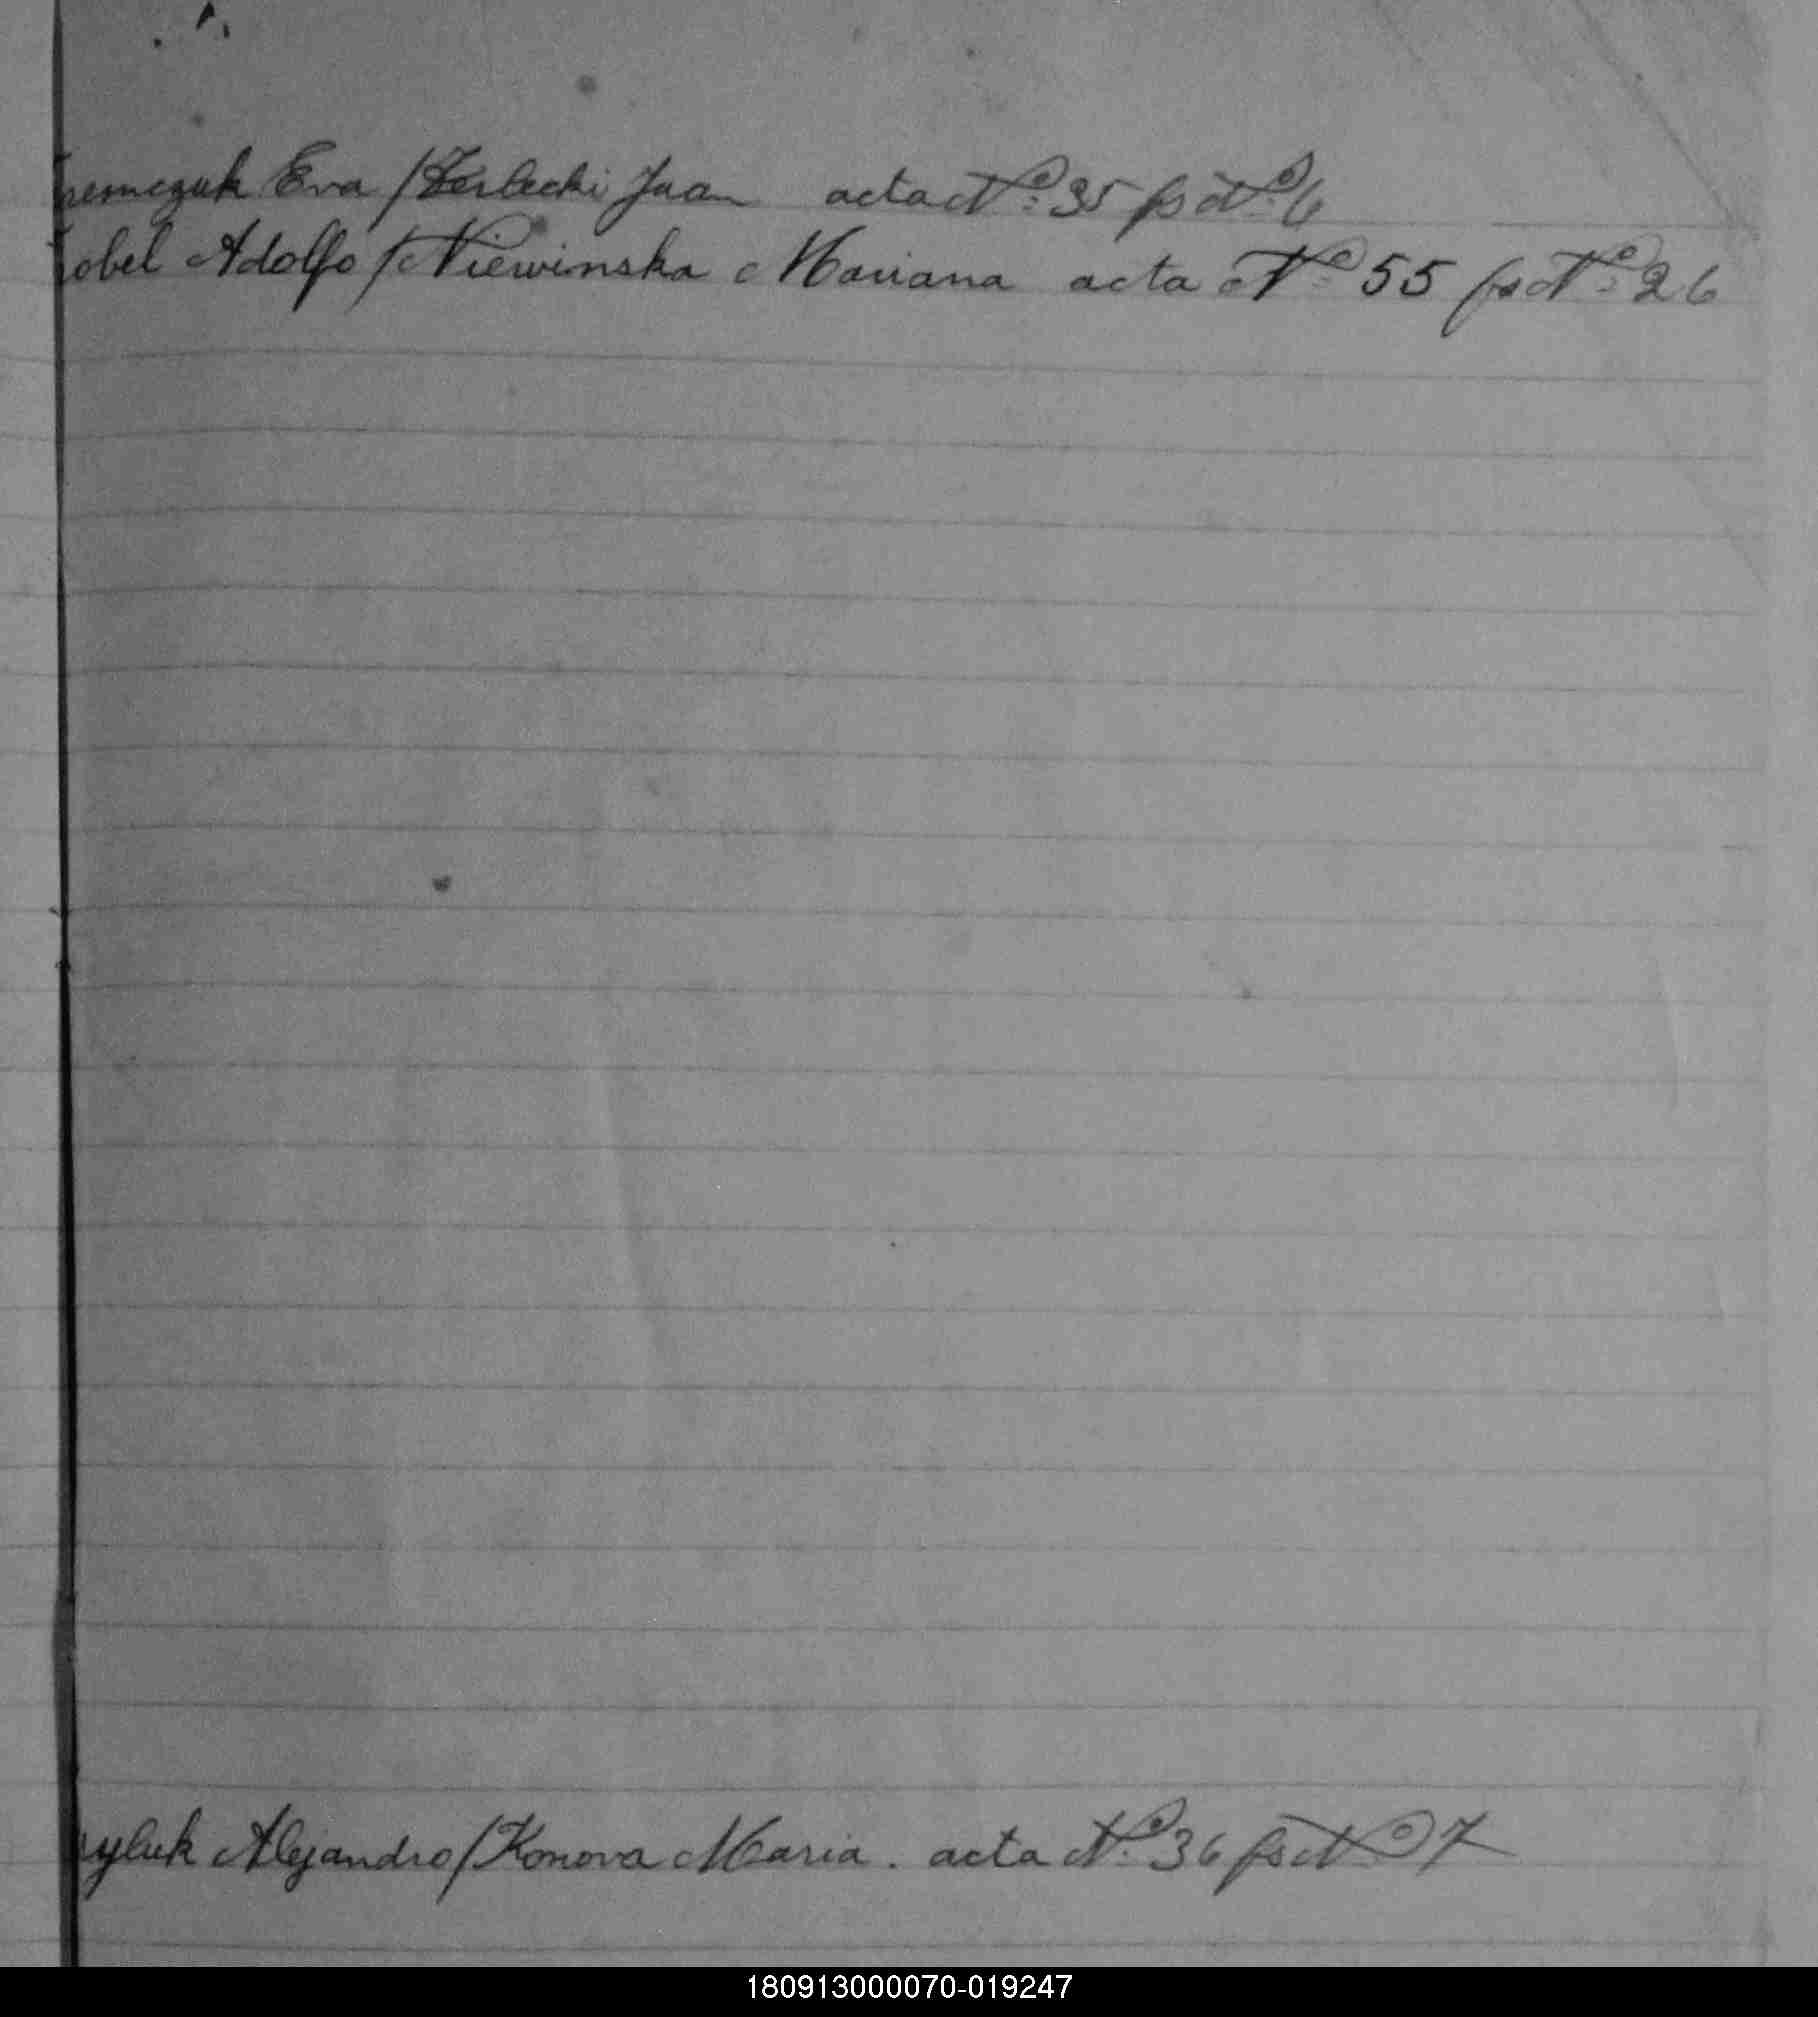 remczuk Eva / Zerbecki Juan acta Nº 35 fs Nº 6
obel Adolfo / Niewinska Mariana acta Nº 55 fs Nº 26
yluk Alejandro / Konova Maria. acta Nº 36 fs Nº 7
180913000070-019247